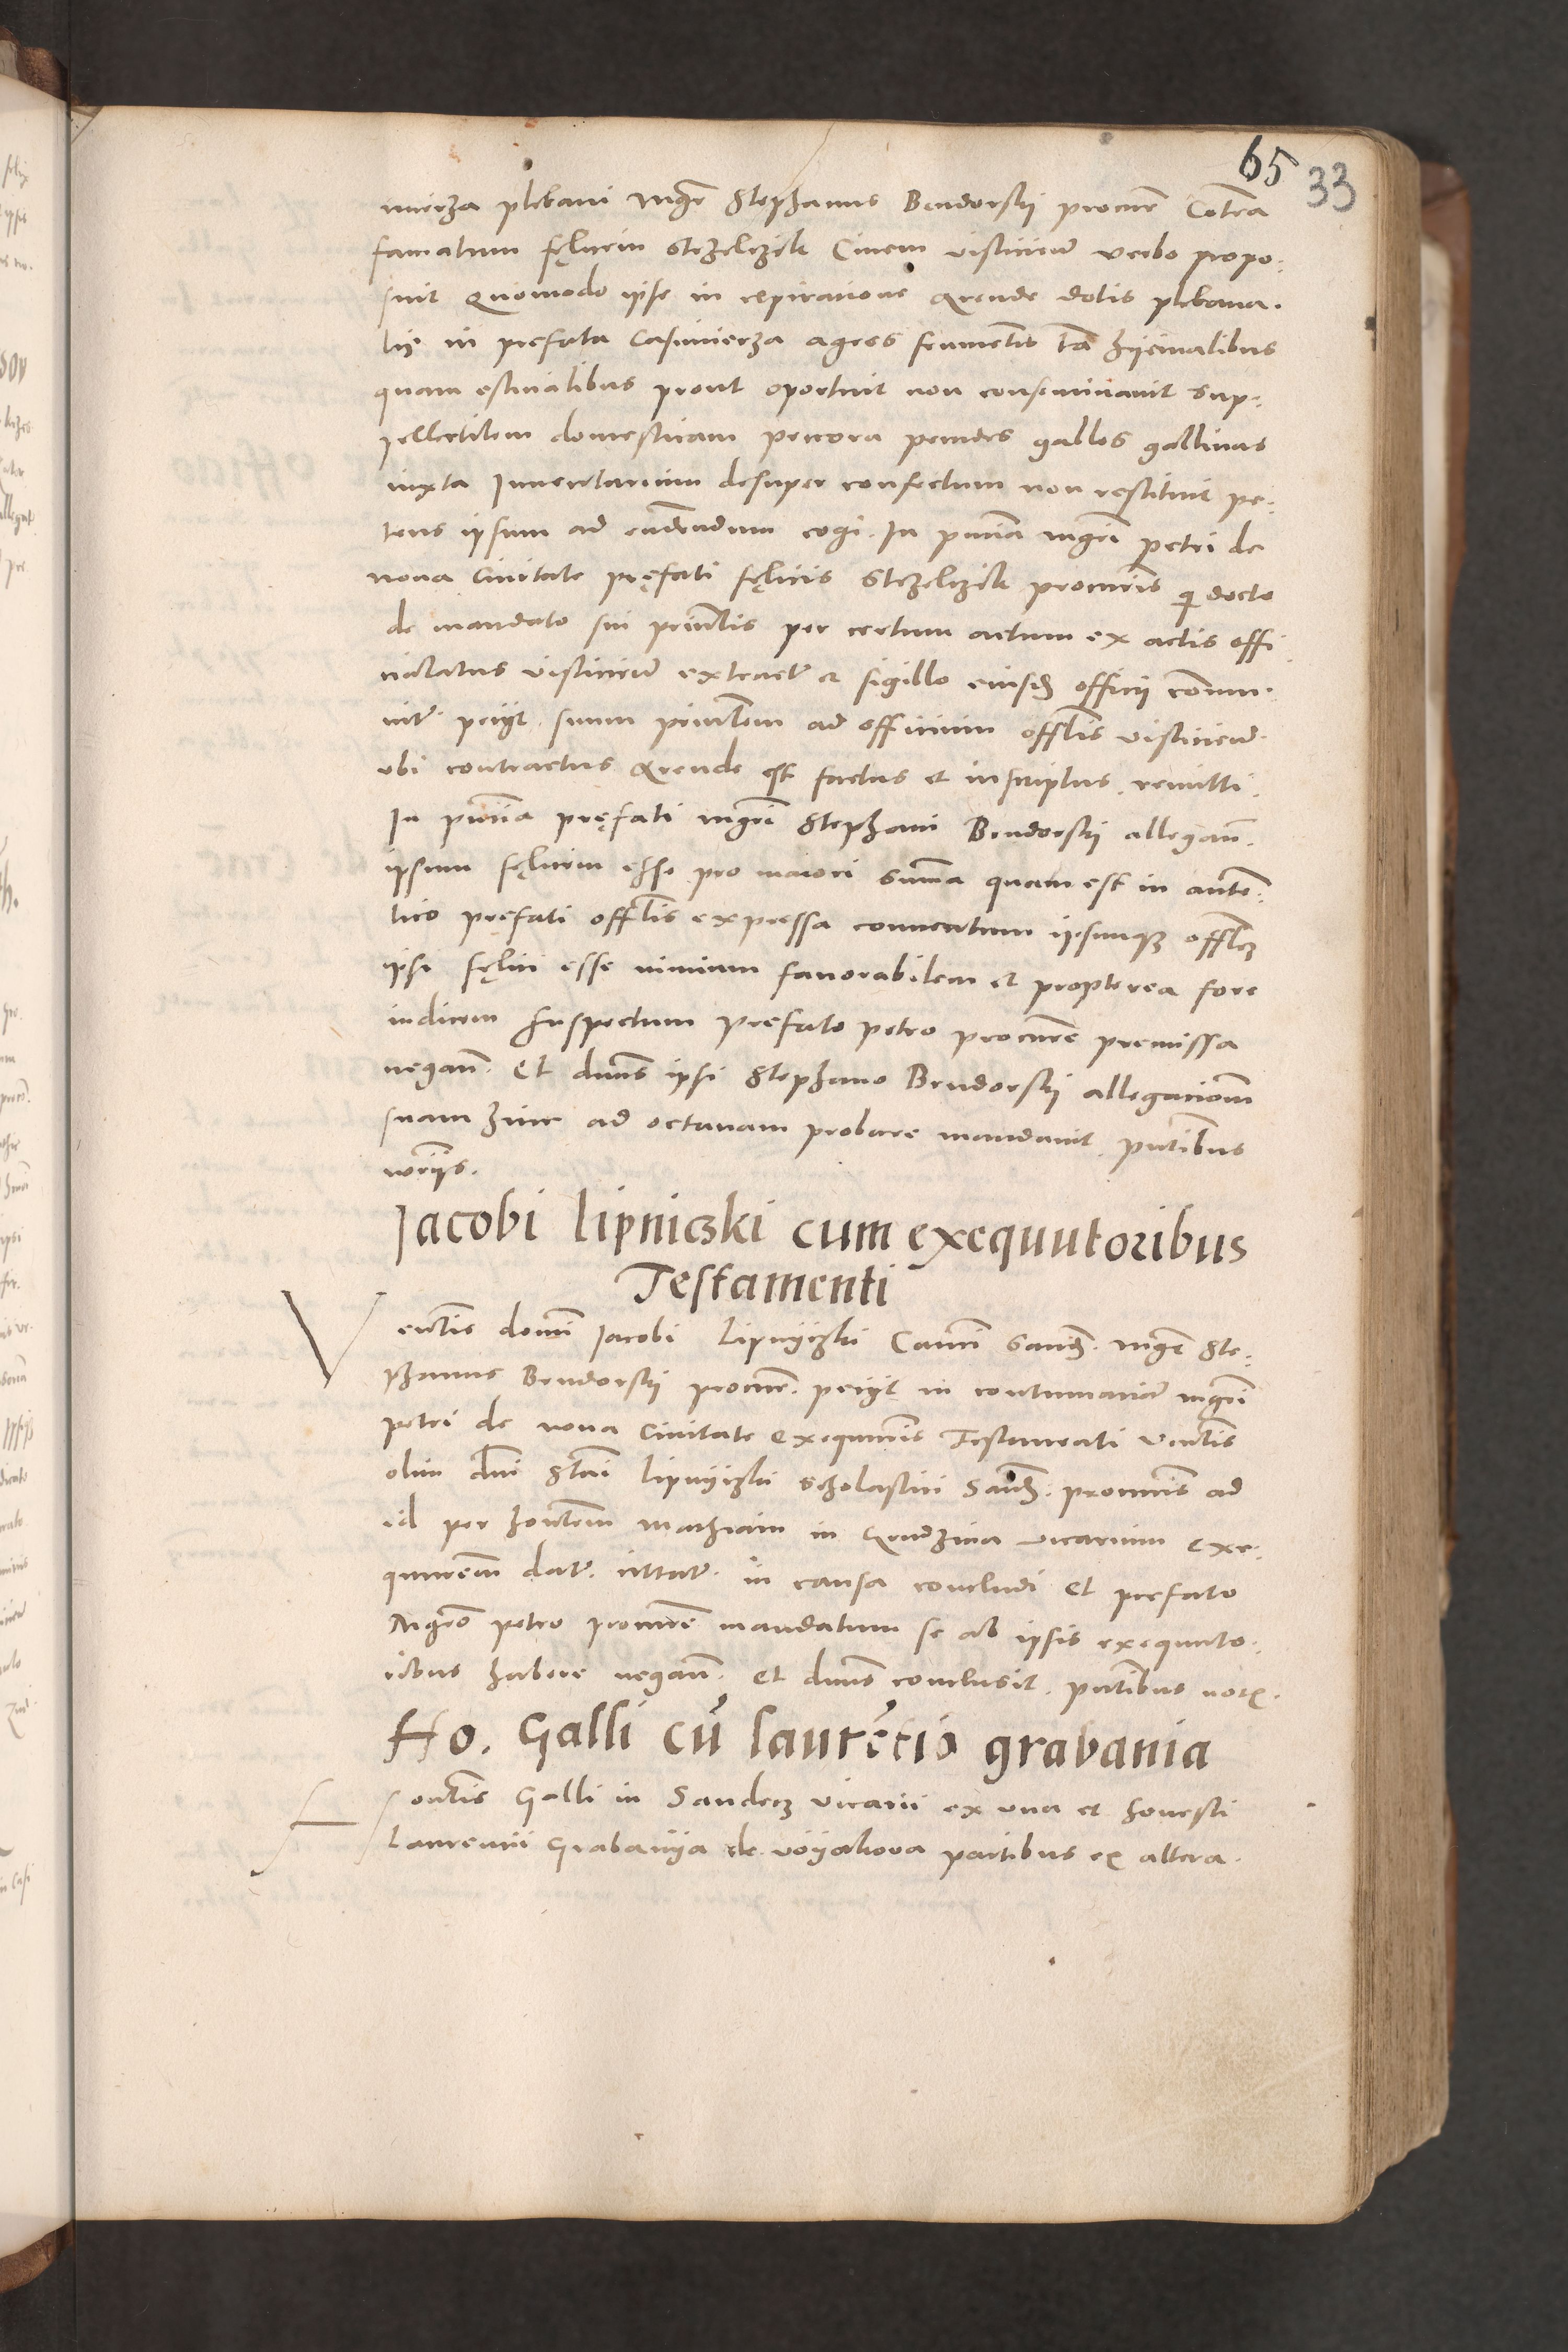 65 33
mierza plebani mgr Stephanus Bendorskij procurr Cōtra
famatum fęlicem Strzelczik Civem vislicien verbo propo:
suit Quomodo ipse in expiratione Arende dotis plebana.
lis in prefata Casimierza agros frumentis tā hÿemalibus
quam estivalibus prout oportuit non conseminavit Sup:
pellectilem domesticam peccora pecudes gallos gallinas
iuxta Inventarium desuper confectum non restituit pe:
tens ipsum ad reddendum cogi. In pncia mgri Petri de
nova Civitate pręfati fęlicis Strzelczik procuris qi docto
de mandato sui principlis per certum actum ex actis offi
cialatus visliciens extract et sigillo eiusdē officii cōmu.
nit petijt suum principlem ad officium offlis visliciens
vbi contractus Arende est factus et inscriptus remitti.
In pncia pręfati mgri Stephani Bendorskij allegan̄.
ipsum fęlicem esse pro maiori Suma quam est in auten:
tico pręfati offlis expressa conventum ipsumqz offlez
ipsi fęlici esse nimium favorabilem et propterea fore
iudicem suspectum Prefato Petro procurre premissa
negan̄. Et dnus ipsi Stephano Bendorskij allegacionem
suam hinc ad octavam probare mandavit pntibus
notrijs.
Jacobi lipniczki cum exequutoribus
Testamenti
Venlis domi Jacobi Lipnÿczki Canci Sandē. mgr Ste:
phanus Bendorskij procurr. petijt in contumacia mgri
petri de nova Civitate exequutris Testamenti venlis
olim dni Stai lipnÿczki Scholastici Sandē. procuris ad
id per hontem Mathiam in vicarium exe:
quutorem dat. in causa concludi et prefato
Mgro petro procurre mandatum se ab ipsis exequuto:
ribus habere negan̄. Et dnus conclusit. pntibus notx.
Ho. Galli cū laurēcio grabania
Hontis Galli in Sandecz vicarii ex una et honesti
Laurencii Grabanÿa de partibus ex altera.